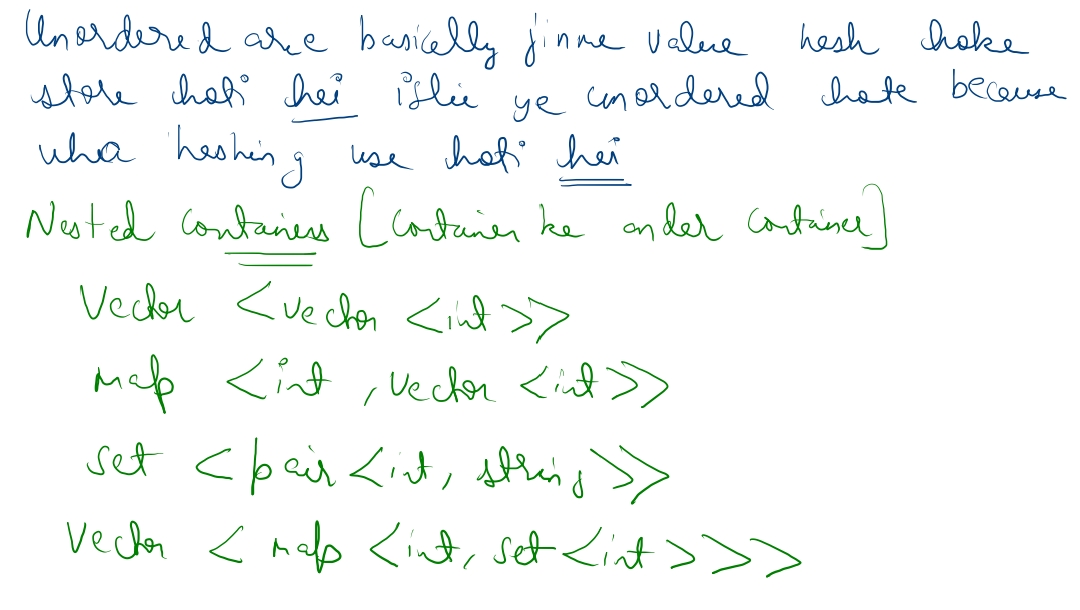 Unordered are basically jinme value hash hoke
store hoti hei islie ye unordered hote because
wha hashing use hoti hei
Nested containers [container ke under container]
Vector <vector <int>>
map <int, vector <int>>
set <pair <int, string>>
Vector < map <int, set <int>>>